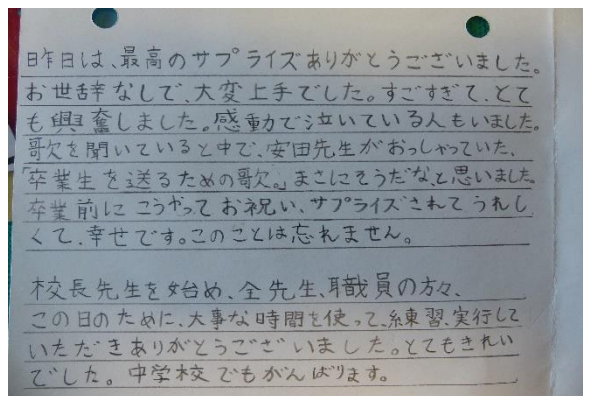 昨日は、最高のサプライズありがとうございました。
お世辞なしで、大変上手でした。すごすぎて、とて
も興奮しました。感動で泣いている人もいました。
歌を聞いていると中で、安田先生がおっしゃっていた、
「卒業生を送るための歌。」まさにそうだな、と思いました。
卒業前にこうやってお祝い、サプライズされてうれし
くて、幸せです。このことは忘れません。
校長先生を始め、全先生、職員の方々、
この日のために、大事な時間を使って、練習、実行して
いただきありがとうございました。とてもきれい
でした。中学校でもがんばります。